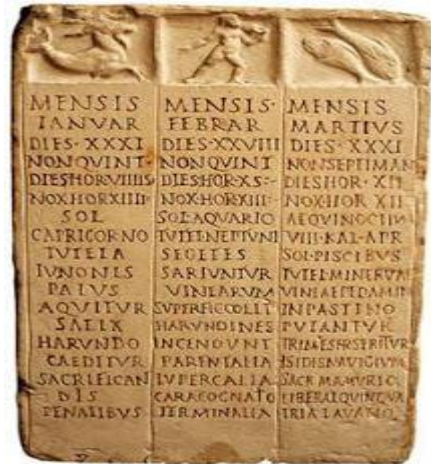 MENSIS
IANVAR
DIES·XXXI
NONQVINT·
DIESHORVIIIIS·
NOXHORXIIII·
SOL
CAPRICORNO
TVTELA
IVNONIS
PALVS
AQVITVR
SALIX
HARVNDO
CAEDITVR
SACRIFICAN
DIS
PENATIBVS
MENSIS·
FEBRAR
DIES·XXVIII
NONQVINT
DIESHOR·XS:-
NOX·HORXIII:-
SOLAQVARIO
TVTELNEPTVNI
SEGETES
SARIVNTVR
VINEARVM
SVPERFICCOLIT
HARVNDINES
INCENDVNT
PARENTALIA
LVPERCALIA
CARACOGNATO
TERMINALIA
MENSIS·
MARTIVS
DIES·XXXI
NONSEPTIMAN
DIESHOR·XII
NOX·HOR XII
AEQVINOCTIVM
VIII·KAL·APR
SOL·PISCIBVS
TVTELMINERVAE
VINEAEPEDAMIN
INPASTINO
PVTANTVR
TRIMESTRSERITVR
ISIDISNAVIGIVM
SACR·MAMVRIO
LIBERALQVINQVA
TRIALAVATIO